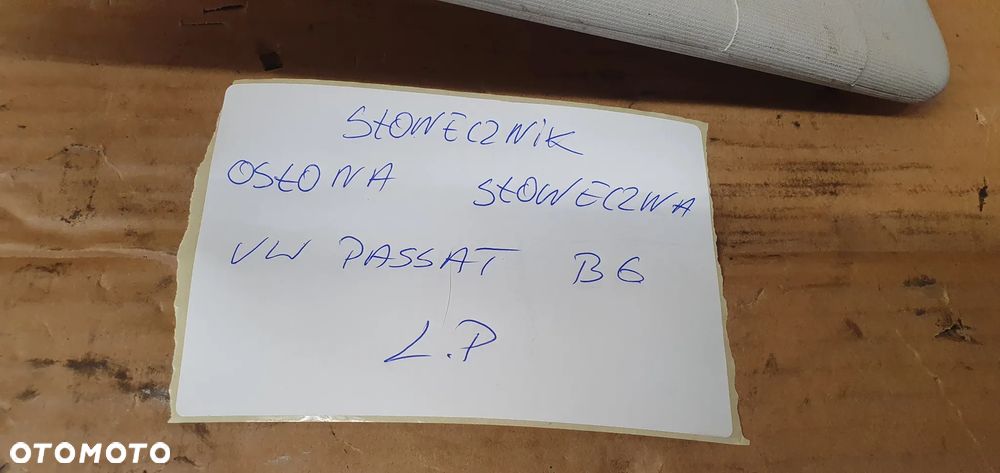 SŁONECZNIK
OSŁONA SŁONECZNA
VW PASSAT B6
L.P
OTOMOTO